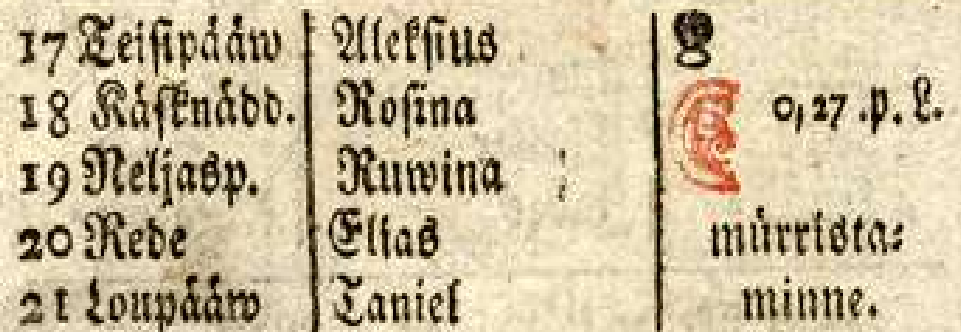 17 Teisipääw Aleksius
18 Käsknädd. Rosina 0,27 .p. L.
19 Neljasp. Ruwina
20 Rede Elias mürrista:
21 Loupääw Taniel minne.